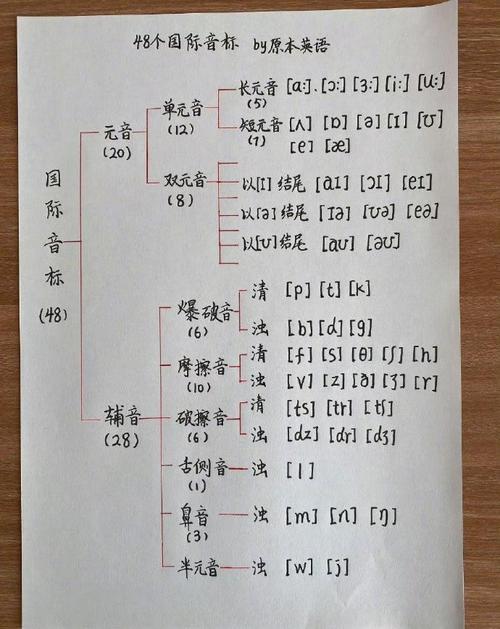 48个国际音标 by原本英语
国际音标
(48)
元音
(20)
单元音
(12)
长元音 [ɑː]、[ɔː] [ɜː] [iː] [uː]
(5)
短元音 [ʌ] [ɒ] [ə] [ɪ] [ʊ]
(7) [e] [æ]
双元音
(8)
以[ɪ]结尾 [aɪ] [ɔɪ] [eɪ]
以[ə]结尾 [ɪə] [ʊə] [eə]
以[ʊ]结尾 [aʊ] [əʊ]
辅音
(28)
爆破音
(6)
清 [p] [t] [k]
浊 [b] [d] [g]
摩擦音
(10)
清 [f] [s] [θ] [ʃ] [h]
浊 [v] [z] [ð] [ʒ] [r]
破擦音
(6)
清 [ts] [tr] [tʃ]
浊 [dz] [dr] [dʒ]
舌侧音 浊 [l]
(1)
鼻音 浊 [m] [n] [ŋ]
(3)
半元音 浊 [w] [j]